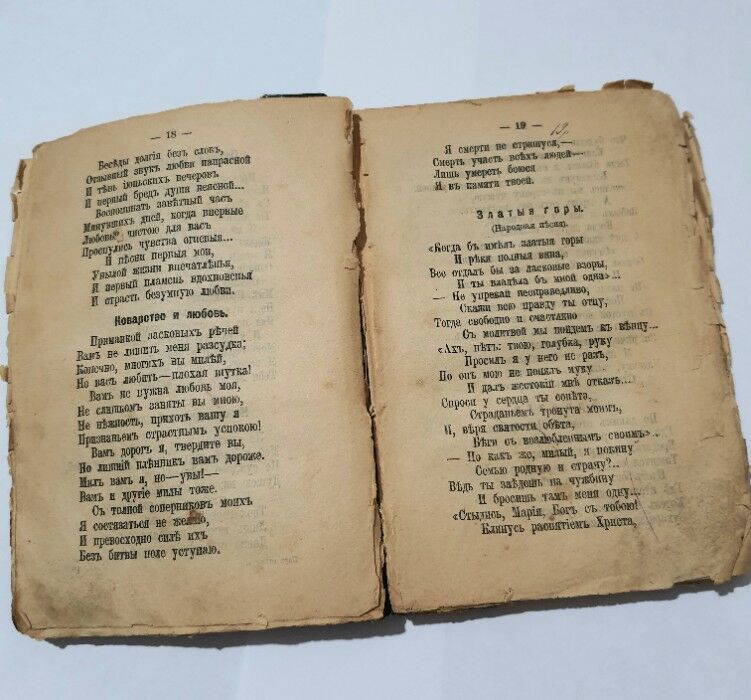 — 18 —
Бесѣды долгія безъ словъ,
Отзывный звукъ любви напрасной
И тѣнь іюньскихъ вечеровъ
И первый бредъ души неясной...
Воспоминать завѣтный часъ
Минувшихъ дней, когда впервые
Любовью чистою для васъ
Проснулись чувства огневыя...
И пѣсни первыя мои,
Унылой жизни впечатлѣнья,
И первый пламень вдохновенья
И страсть безумную любви.
Коварство и любовь.
Приманкой ласковыхъ рѣчей
Вамъ не лишить меня разсудка;
Конечно, многихъ вы милѣй,
Но васъ любить—плохая шутка!
Вамъ не нужна любовь моя,
Не слишкомъ заняты вы мною,
Не нѣжность, прихоть вашу я
Признаньемъ страстнымъ успокою!
Вамъ дорогъ я, твердите вы,
Но лишній плѣнникъ вамъ дороже.
Милъ вамъ я, но—увы!—
Вамъ и другіе милы тоже.
Съ толпой соперниковъ моихъ
Я состязаться не желаю,
И превосходно силѣ ихъ
Безъ битвы поле уступаю.
— 19 — 19.
Я смерти не страшуся,—
Смерть участь всѣхъ людей—
Лишь умереть боюся
Я въ памяти твоей.
Златыя горы.
(Народная пѣсня).
«Когда бъ имѣлъ златыя горы
И рѣки полныя вина,
Все отдалъ бы за ласковые взоры,
И ты владѣла бъ мной одна»...
— Не упрекай несправедливо,
Скажи всю правду ты отцу,
Тогда свободно и счастливо
Съ молитвой мы пойдемъ къ вѣнцу...
«Ахъ, нѣтъ: твою, голубка, руку
Просилъ я у него не разъ,
Но онъ мою не понялъ муку
И далъ жестокій мнѣ отказъ...
Спроси у сердца ты совѣта,
Страданьемъ тронута моимъ,
И, вѣря святости обѣта,
Бѣги съ возлюбленнымъ своимъ»..
— Но какъ же, милый, я покину
Семью родную и страну?..
Вѣдь ты заѣдешь на чужбину
И бросишь тамъ меня одну...
«Стыдись, Марія, Богъ съ тобою!
Клянусь распятіемъ Христа,